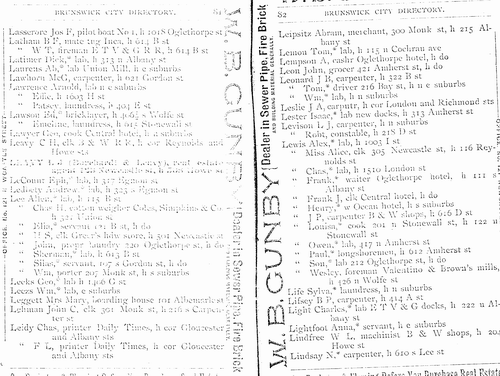 BRUNSWICK CITY DIRECTORY.
Lasserore Jos F, pilot boat No 1, h 1018 Oglethorpe st
Latham B F, mate tug Inca, h 614 B st
" W T, fireman E T V & G R R, h 614 B st
Latimer Dick,* lab, h 313 n Albany
Laurens Ab,* lab Union Mill, h e suburbs
Lawhorn McG, carpenter, h 621 Gordon st
Lawrence Arnold, lab n e suburbs
" Mike, h 1603 H st
" Patsey, laundress, h 404 E st
Lawson Ed,* brickmkr, h 306½ s Wolfe st
" Emeline, laundress, h 615 Stonewall st
Lawyer Geo, cook Central hotel, n suburbs
Leavy C H, clk B & W R R, h cor Reynolds and
Howe sts
agent
Newcastle st, h
Howe st
LeCount Eph,* lab, h 317 Egmont st
Ledbety Andrew,* lab, h 325 n Egmont st
Lee Allen,* lab, h 115 B st
" Chas H, cotton weigher Coles, Simpkins & Co
h 321 Union st
" Milo,* servant 121 B st, h do
" H S, clk Greer's hdw store, h 501 Newcastle st
" John, propr laundry 220 Oglethorpe st, h do
" Sherman,* lab, h 615 B st
" Silas,* servant, 507 s Gordon st, h do
" Wm, porter 207 Monk st, h s suburbs
Leeks Geo,* lab h 1406 G st
Leezs Wm,* lab, e suburbs
Leggett Mrs Mary, boarding house 101 Albemarle st
Lehman John C, clk 301 Monk st, h 216 s Carpen-
ter st
Leidy Chas, printer Daily Times, h cor Gloucester
and Albany sts
" F L, printer Daily Times, h cor Gloucester
and Albany sts
W. B. GUNBY
Dealer in Sewer Pipe, Fire Brick
82 BRUNSWICK CITY DIRECTORY.
Leipsitz Abram, merchant, 300 Monk st, h 215 Al-
bany st
Lemon Tom,* lab, h 115 n Cochran ave
Lempson A, cashr Oglethorpe hotel, h do
Leon John, grocer 421 Amherst st, h do
Leonard J R, carpenter, h 322 B st
" Tom,* driver 216 Bay st, h n e suburbs
" Wm,* lab, h n suburbs
Leslie J A, carpntr, h cor London and Richmond sts
Lester Isaac,* lab new docks, h 313 Amherst st
Levison L J, carpenter, h n suburbs
" Robt, constable, h 218 D st
Lewis Alex,* lab, h 1003 I st
" Miss Alice, clk 305 Newcastle st, h 116 Rey-
nolds st
" Chas,* lab, h 1510 London st
" Frank,* waiter Oglethorpe hotel, h 111 s
Albany st
" Frank J, clk Central hotel, h do
" Henry,* w Ocean hotel, h s suburbs
" J P, carpenter B & W shops, h 616 D st
" Louisa,* cook 201 n Stonewall st, h 122 n
Stonewall st
" Owen,* lab, 417 n Amherst st
" Paul,* longshoremen, h 612 Amherst st
" Son,* lab 212 Oglethorpe st, h do
" Wesley, foreman Valentino & Brown's mills,
h 426 n Wolfe st
Life Sylva,* laundress, h n suburbs
Lifsey B P, carpenter, h 414 A st
Light Charles,* lab E T V & G docks, h 222 n Al-
bany st
Lightfoot Anna,* servant, h e suburbs
Lindfree W I, machinist B & W shops, h
Howe st
Lindsay N,* carpenter, h 610 s Lee st
W. B. GUNBY
Dealer in Sewer Pipe, Fire Brick
AND BUILDING MATERIAL GENERALLY.